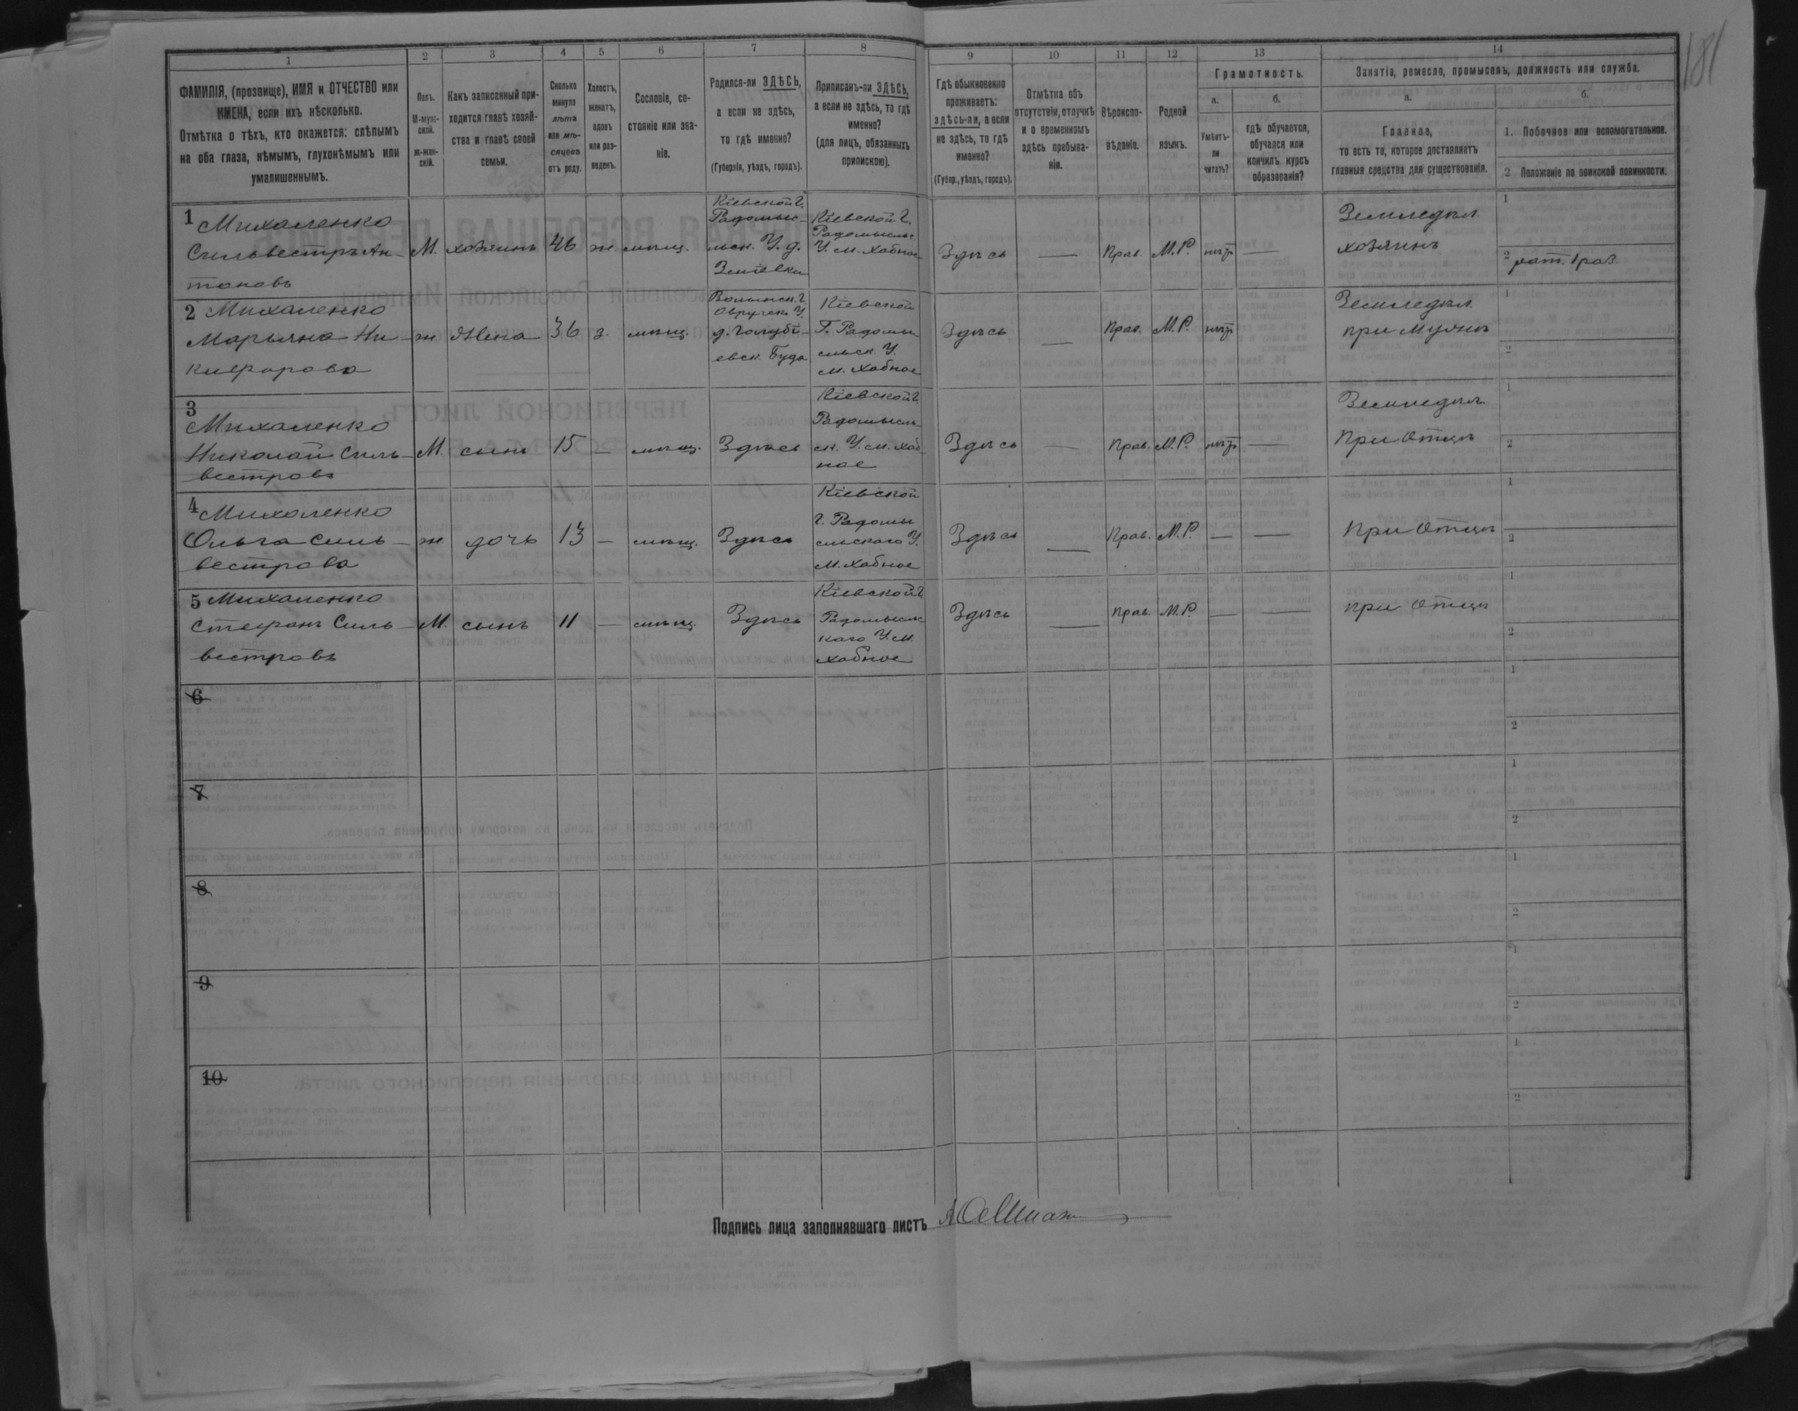 181
1 2 3 4 5 6 7 8 9 10 11 12 13 14
ФАМИЛІЯ, (прозвище), ИМЯ и ОТЧЕСТВО или
ИМЕНА, если ихъ нѣсколько.
Отмѣтка о тѣхъ, кто окажется: слѣпымъ
на оба глаза, нѣмымъ, глухонѣмымъ или
умалишеннымъ.
Полъ.
М-муж-
ской.
ж-жен-
скій.
Какъ записанный при-
ходится главѣ хозяй-
ства и главѣ своей
семьи.
Сколько
минуло
лѣтъ
или мѣ-
сяцевъ
отъ роду.
Холостъ,
женатъ,
вдовъ
или раз-
веденъ.
Сословіе, со-
стояніе или зва-
ніе.
Родился-ли ЗДѢСЬ,
а если не здѣсь,
то гдѣ именно?
(Губернія, уѣздъ, городъ).
Приписанъ-ли ЗДѢСЬ,
а если не здѣсь, то гдѣ
именно?
(для лицъ, обязанныхъ
припискою).
Гдѣ обыкновенно
проживаетъ:
здѣсь-ли, а если
не здѣсь, то гдѣ
именно?
(Губер., уѣздъ, городъ).
Отмѣтка объ
отсутствіи, отлучкѣ
и о временномъ
здѣсь пребыва-
ніи.
Вѣроиспо-
вѣданіе.
Родной
языкъ.
Грамотность.
а.
Умѣетъ-
ли
читать?
б.
гдѣ обучается,
обучался или
кончилъ курсъ
образованія?
Занятія, ремесло, промыселъ, должность или служба.
а.
Главное,
то есть то, которое доставляетъ
главныя средства для существованія.
б.
1. Побочное или вспомогательное.
2 Положеніе по воинской повинности.
1 Михаленко
Сильвестръ Ан-
тоновъ
М. хозяинъ 46 ж мѣщ.
Кіевской г.
Радомыс-
льск. У. д.
Кіевской г.
Радомысль.
У. м. Хабное
Здѣсь — Прав. М.Р. нѣтъ —
Земледѣл
хозяинъ
1
2 рат. 1 раз.
2 Михаленко
Марьяна Ни-
кифорова
ж Жена 36 з. мѣщ.
Волынск. г.
Овручск У.
д. Голубі-
евск. Буда
Кіевской
Г. Радомы
сльск У.
м. Хабное
Здѣсь — Прав. М.Р. нѣтъ
Земледѣл
при мужѣ
1
2
3
Михаленко
Николай Силь-
вестровъ
М сынъ 15 — мѣщ. Здѣсь
Кіевской г
Радомысль
ск. У. м. Хаб
ное
Здѣсь — Прав. М.Р. нѣтъ —
Земледѣл
При Отцѣ
1
2
4 Михаленко
Ольга Силь-
вестрова
ж дочь 13 — мѣщ. Здѣсь
Кіевской
г. Радомы
сльского У.
м. Хабное
Здѣсь — Прав. М.Р. — —
При Отцѣ
1
2
5 Михаленко
Стефанъ Силь-
вестровъ
М. сынъ 11 — мѣщ. Здѣсь
Кіевской г
Радомысльс
кого У. м.
Хабное
Здѣсь — Прав. М.Р. — —
При Отцѣ
1
2
6
1
2
7
1
2
8
1
2
9
1
2
10
1
2
Подпись лица заполнявшаго листъ